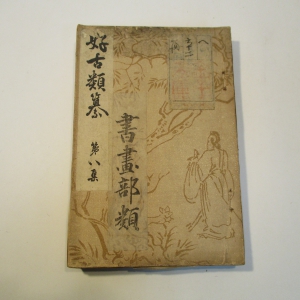 好古類纂 第八集
書畫部類